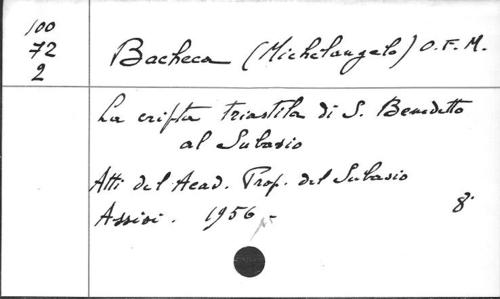 100
72
2
Bacheca (Michelangelo) O.F.M.
La cripta triastila di S. Benedetto
al Subasio
Atti del Acad. Prop. del Subasio
Assisi. 1956.-
8°